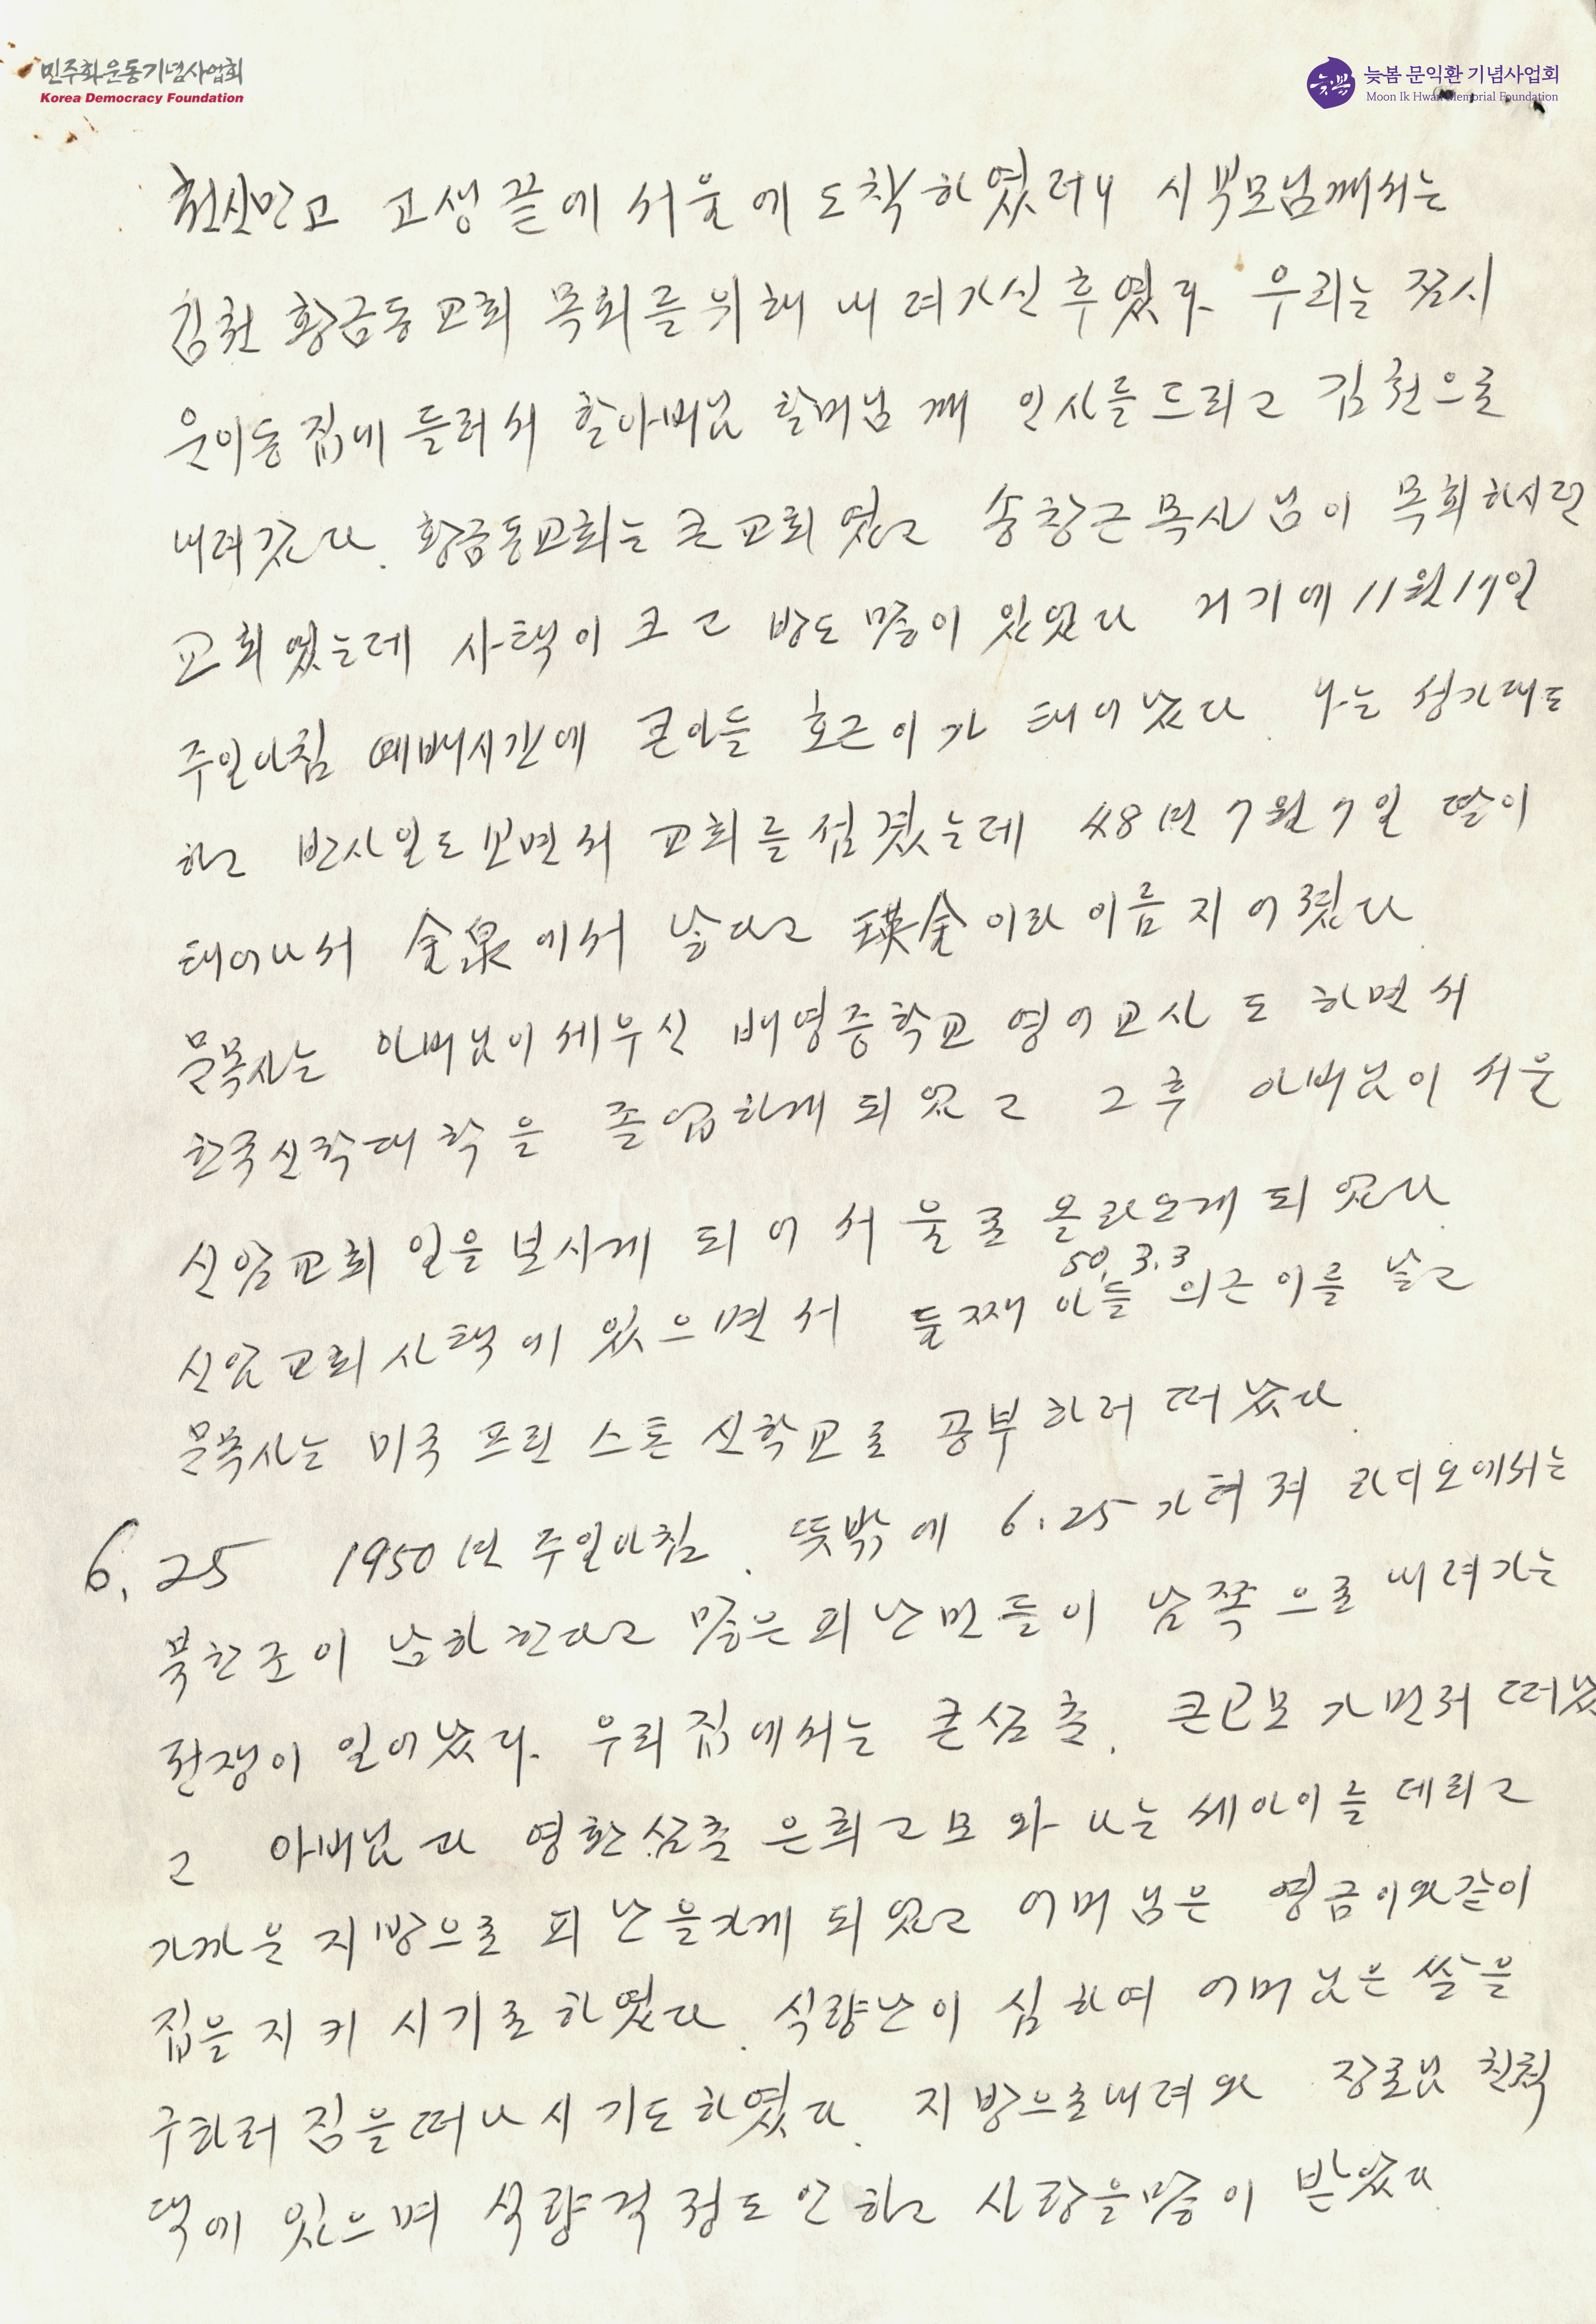 민주화운동기념사업회
Korea Democracy Foundation
늦봄 문익환 기념사업회
Moon Ik Hwan Memorial Foundation
천신만고 고생끝에 서울에 도착하였더니 시부모님께서는
김천 황금동교회 목회를 위해 내려가신 후였다. 우리는 잠시
운이동집에 들러서 할아버님 할머님께 인사를 드리고 김천으로
내려갔다. 황금동교회는 큰 교회였고 송창근목사님이 목회하시던
교회였는데 사택이 크고 방도 많이 있었다 거기에 11월 17일
주일아침 예배시간에 큰아들 호근이가 태어났다. 나는 성가대도
하고 반사일도 보면서 교회를 섬겼는데 48년 7월 7일 딸이
태어나서 金泉에서 났다고 瑛金이라 이름지어졌다.
문목사는 아버님이 세우신 배영중학교 영어교사도 하면서
한국신학대학을 졸업하게 되었고 그후 아버님이 서울
신암교회 일을 보시게 되어 서울로 올라오게 되었다.
50. 3. 3
신암교회 사택에 있으면서 둘째아들 의근이를 낳고
문목사는 미국 프린스톤 신학교로 공부하러 떠났다.
6. 25 1950년 주일아침. 뜻밖에 6.25가 터져 라디오에서는
북한군이 남하한다고 많은 피난민들이 남쪽으로 내려가는
전쟁이 일어났다. 우리집에서는 큰삼촌, 큰고모가 먼저 떠났
고 아버님과 영환삼촌 은희고모와 나는 세아이를 데리고
가까운 지방으로 피난을가게 되었고 어머님은 영금이와같이
집을 지키시기로 하였다. 식량난이 심하여 어머님은 쌀을
구하러 집을 떠나시기도 하였다. 지방으로내려와 장로님 친척
댁에 있으며 식량걱정도 안하고 사랑을많이 받았다.